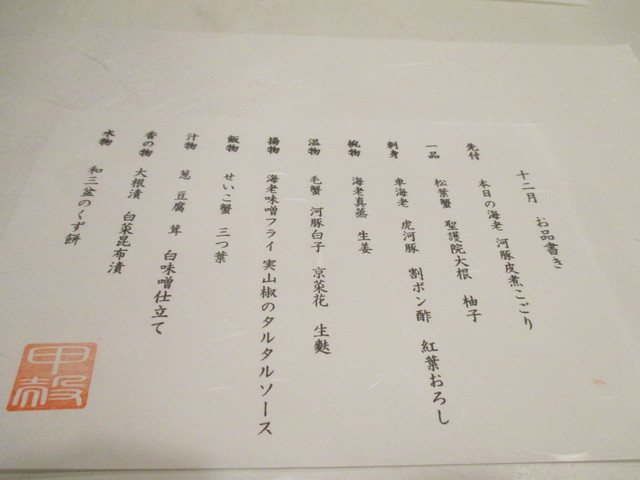 十二月 お品書き
先付 本日の海老 河豚皮煮こごり
一品 松葉蟹 聖護院大根 柚子
刺身 車海老 虎河豚 割ポン酢 紅葉おろし
椀物 海老真蒸 生姜
温物 毛蟹 河豚白子 京菜花 生麩
揚物 海老味噌フライ 実山椒のタルタルソース
飯物 せいこ蟹 三つ葉
汁物 葱 豆腐 茸 白味噌仕立て
香の物 大根漬 白菜昆布漬
水物 和三盆のくず餅
甲殻